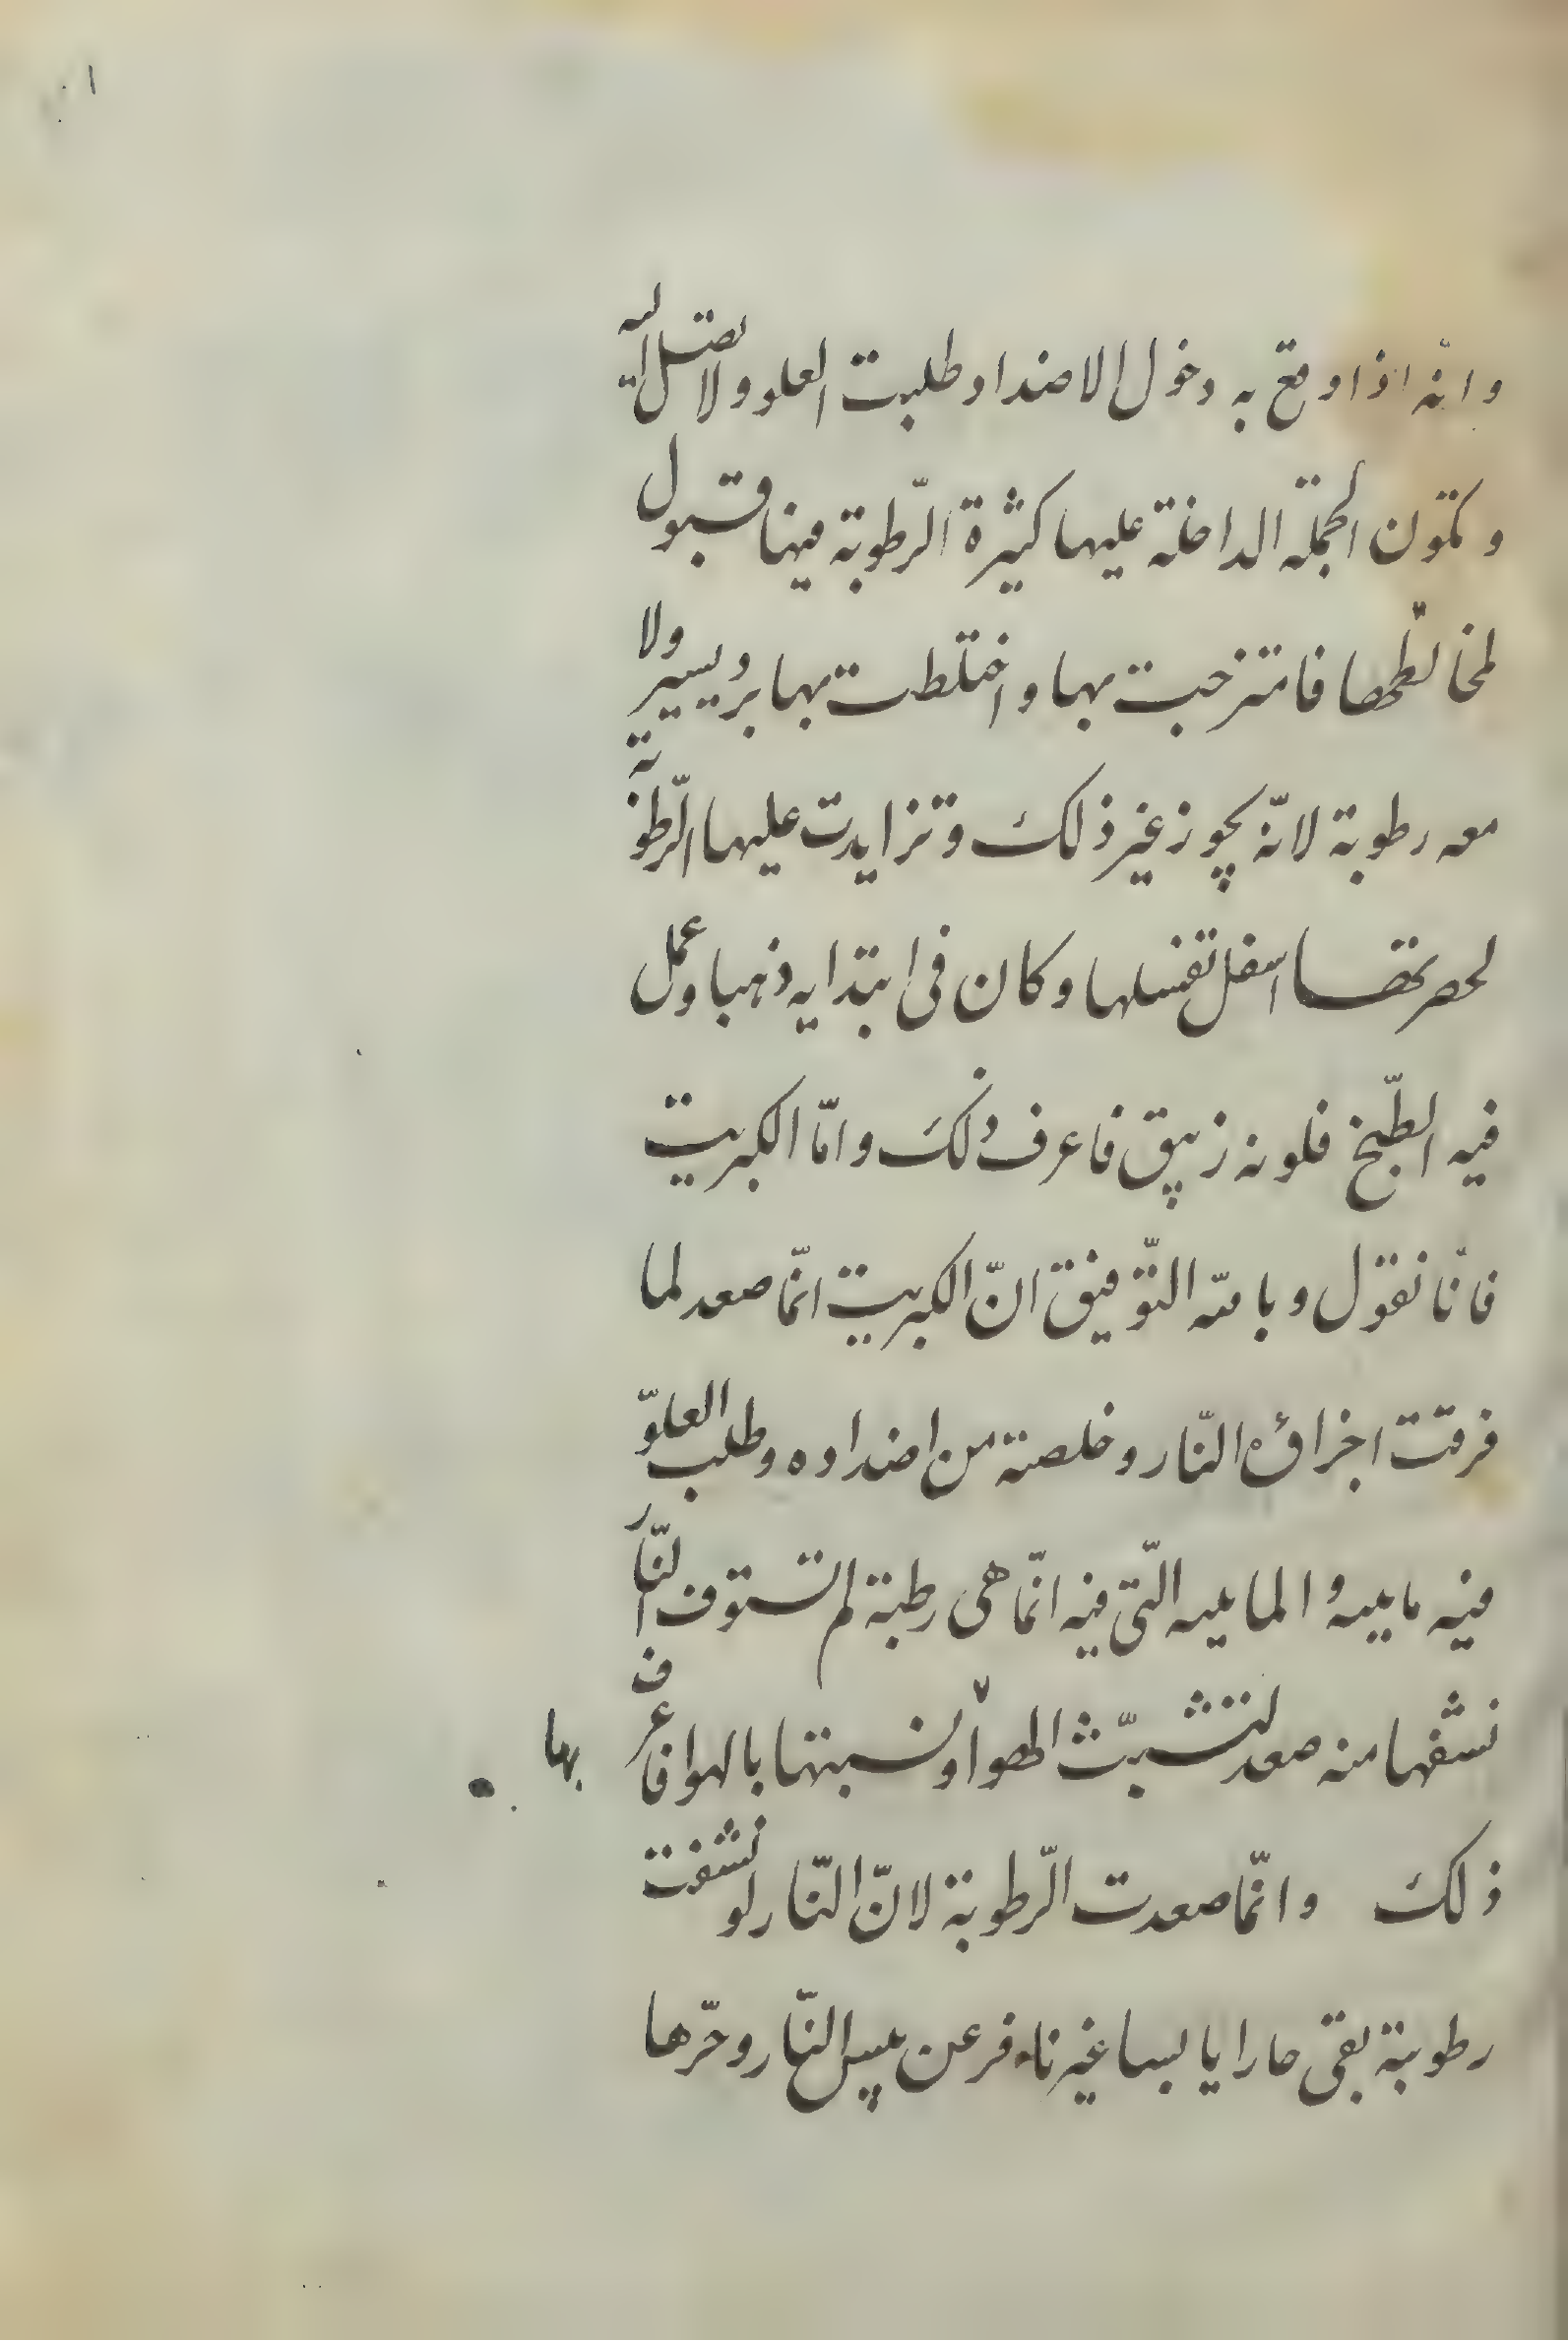 وانّه اذا وقع به دخول الاضداد طلبت العلو ولا تصل اليه
وتكون الجملة الداخلة عليها كثيرة الرّطوبة فيها قبول
لمخالطتها فامتزجت بها واختلطت بها برد يسير ولا
معه رطوبة لانّه يجوز غير ذلك وتزايدت عليها الرّطوبة
اسفل تفسلها وكان فى ابتدايه ذهبا وعمل
فيه الطّبخ فلونه زيبق فاعرف ذلك وامّا الكبريت
فانّا نقول وبالله التّوفيق انّ الكبريت انّما صعد لما
فرقت اجزاؤه النّار وخلصته من اضداده وطلب العلوّ
فيه ماييه والماييه الّتى فيه انّما هى رطبة لم تستوف النّار
نشفها منه صعد لتشبّث الهوا ونسبتها بالهوا فاعرف بها
ذلك وانّما صعدت الرّطوبة لانّ النّار لو نشفت
رطوبته بقى حارا يابسا غير نافر عن يبس النّار وحرّها